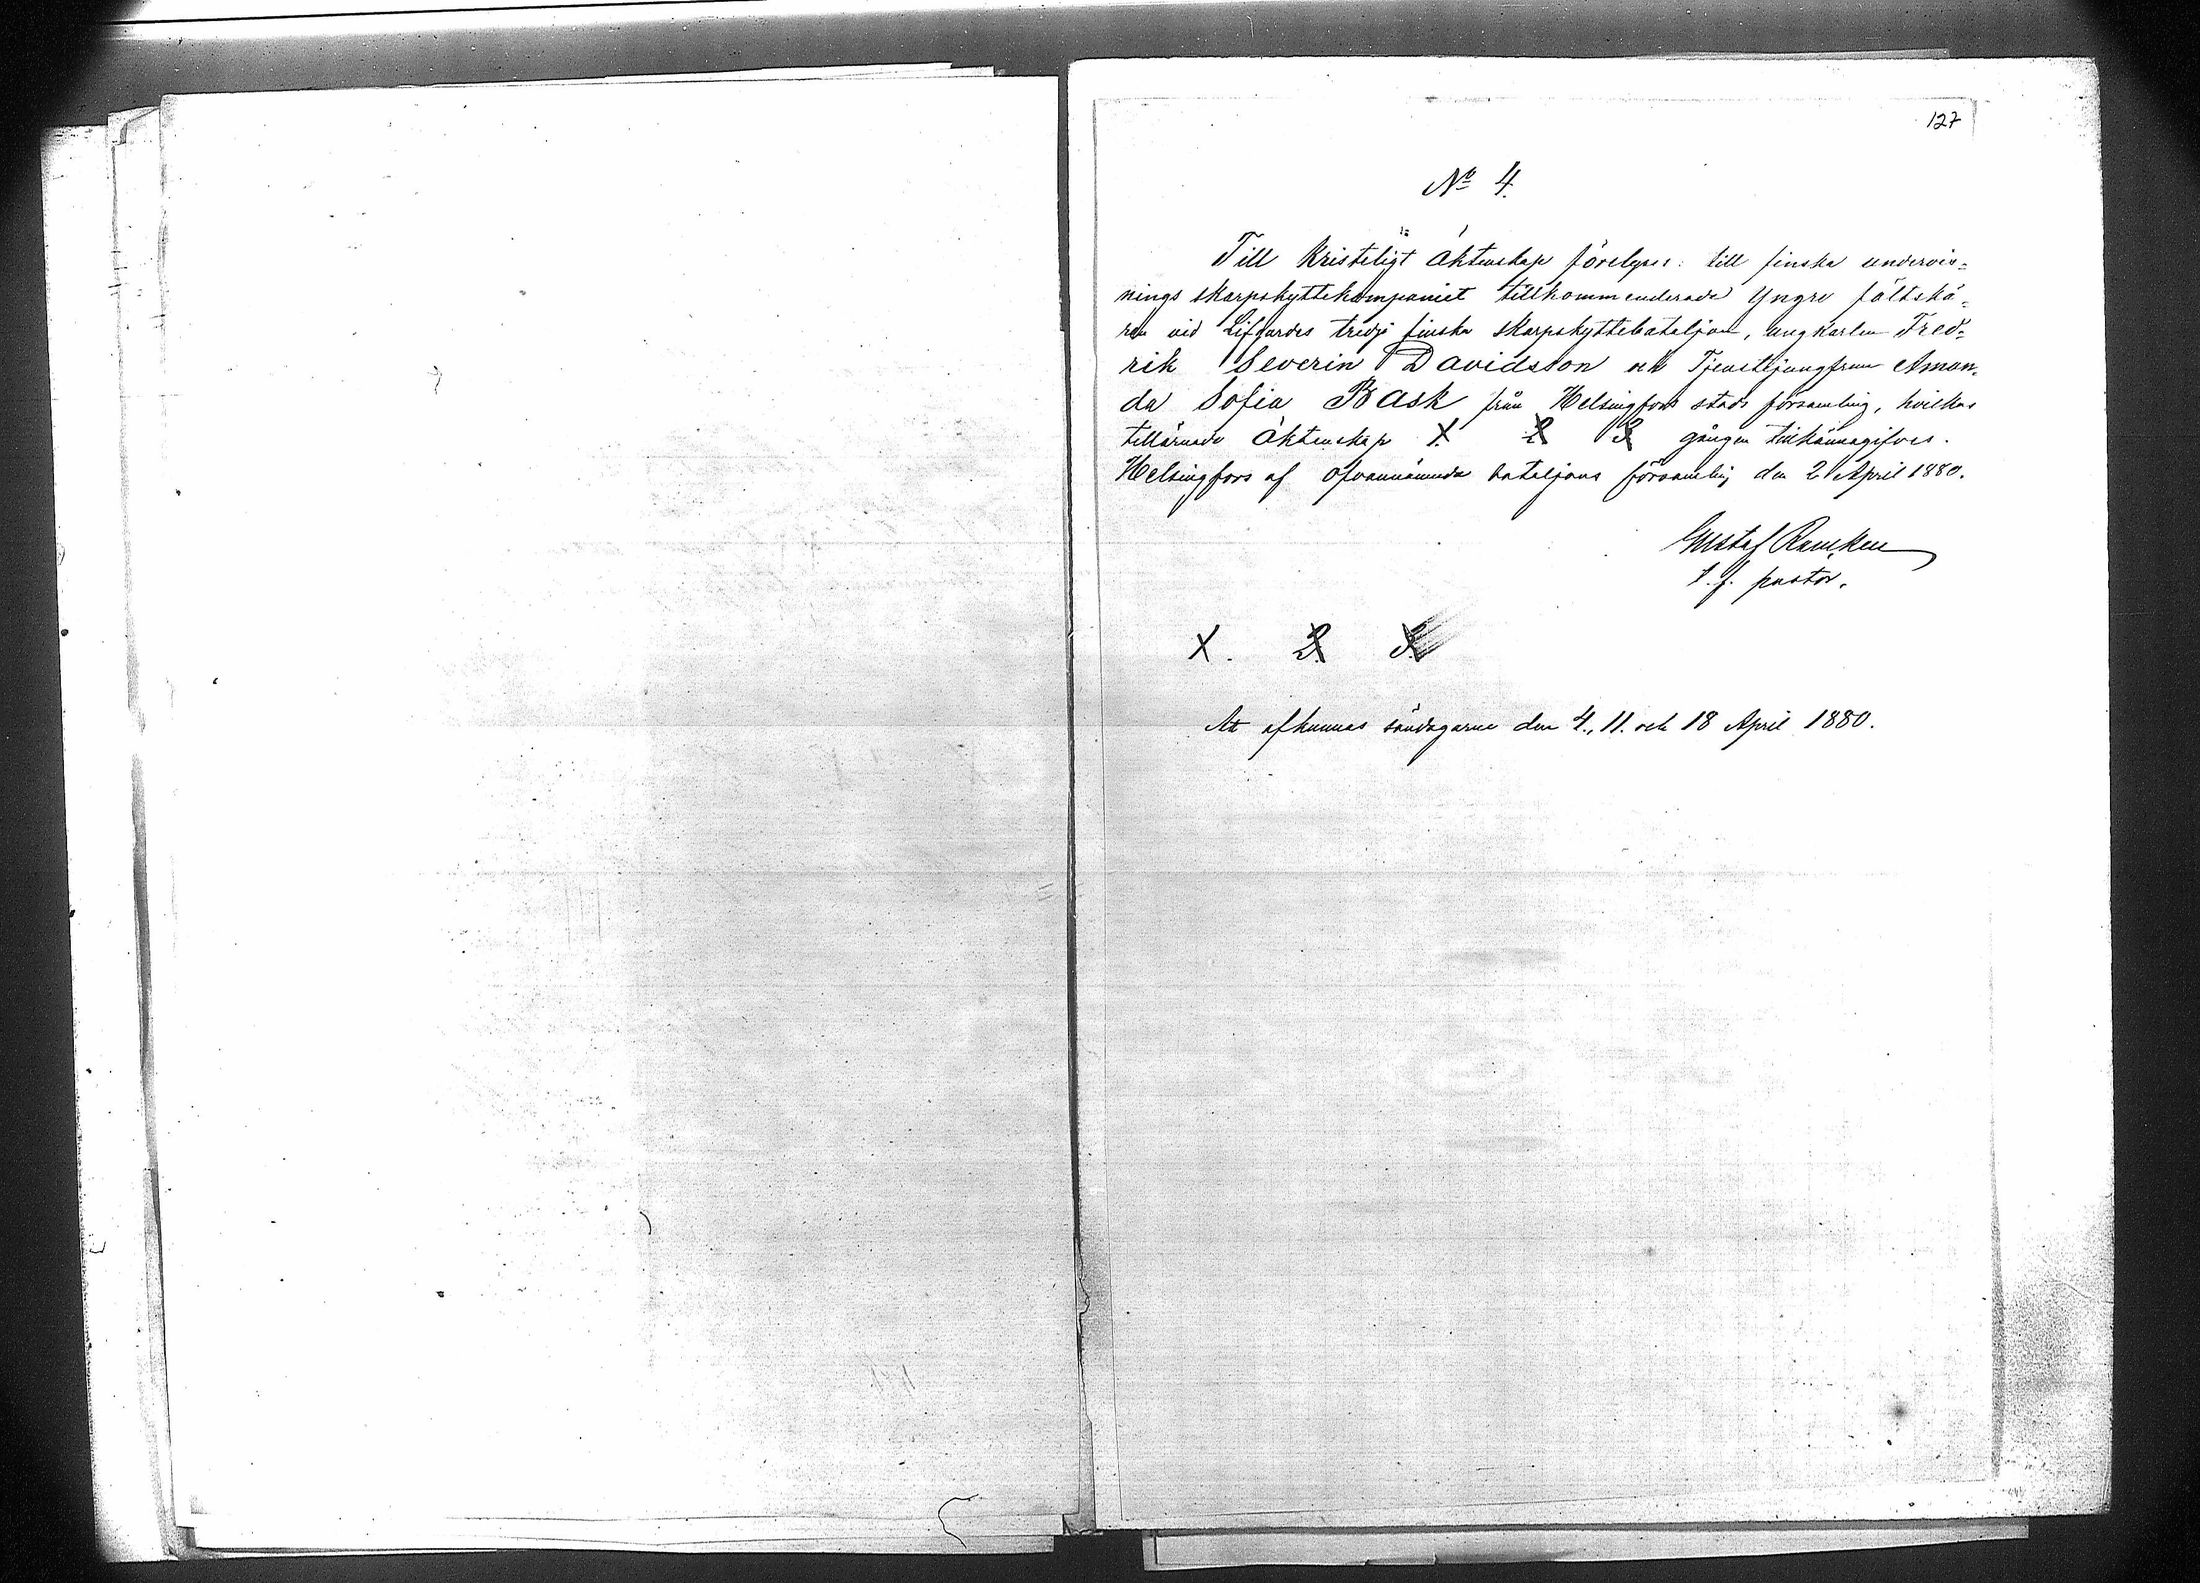 127
No 4.
Till Kristeligt äktenskap förelyses: till finska undervis-
nings skarpskyttekompaniet tillkommenderade Yngre fältskä-
ren vid Lifgardes tredje finska skarpskyttebataljon, ungkarlen Fred-
rik Severin Davidsson och Tjenstejungfrun Aman-
da Sofia Bask från Helsingfors stads församling, hvilkas
tillärnade äktenskap 1 2 3 gången tillkännagifves.
Helsingfors af ofvannämnda bataljons församling den 2 April 1880.
Gustaf Rancken
t. f. pastor.
1. 2. 3.
At afkunnas söndagarne den 4., 11. och 18 April 1880.